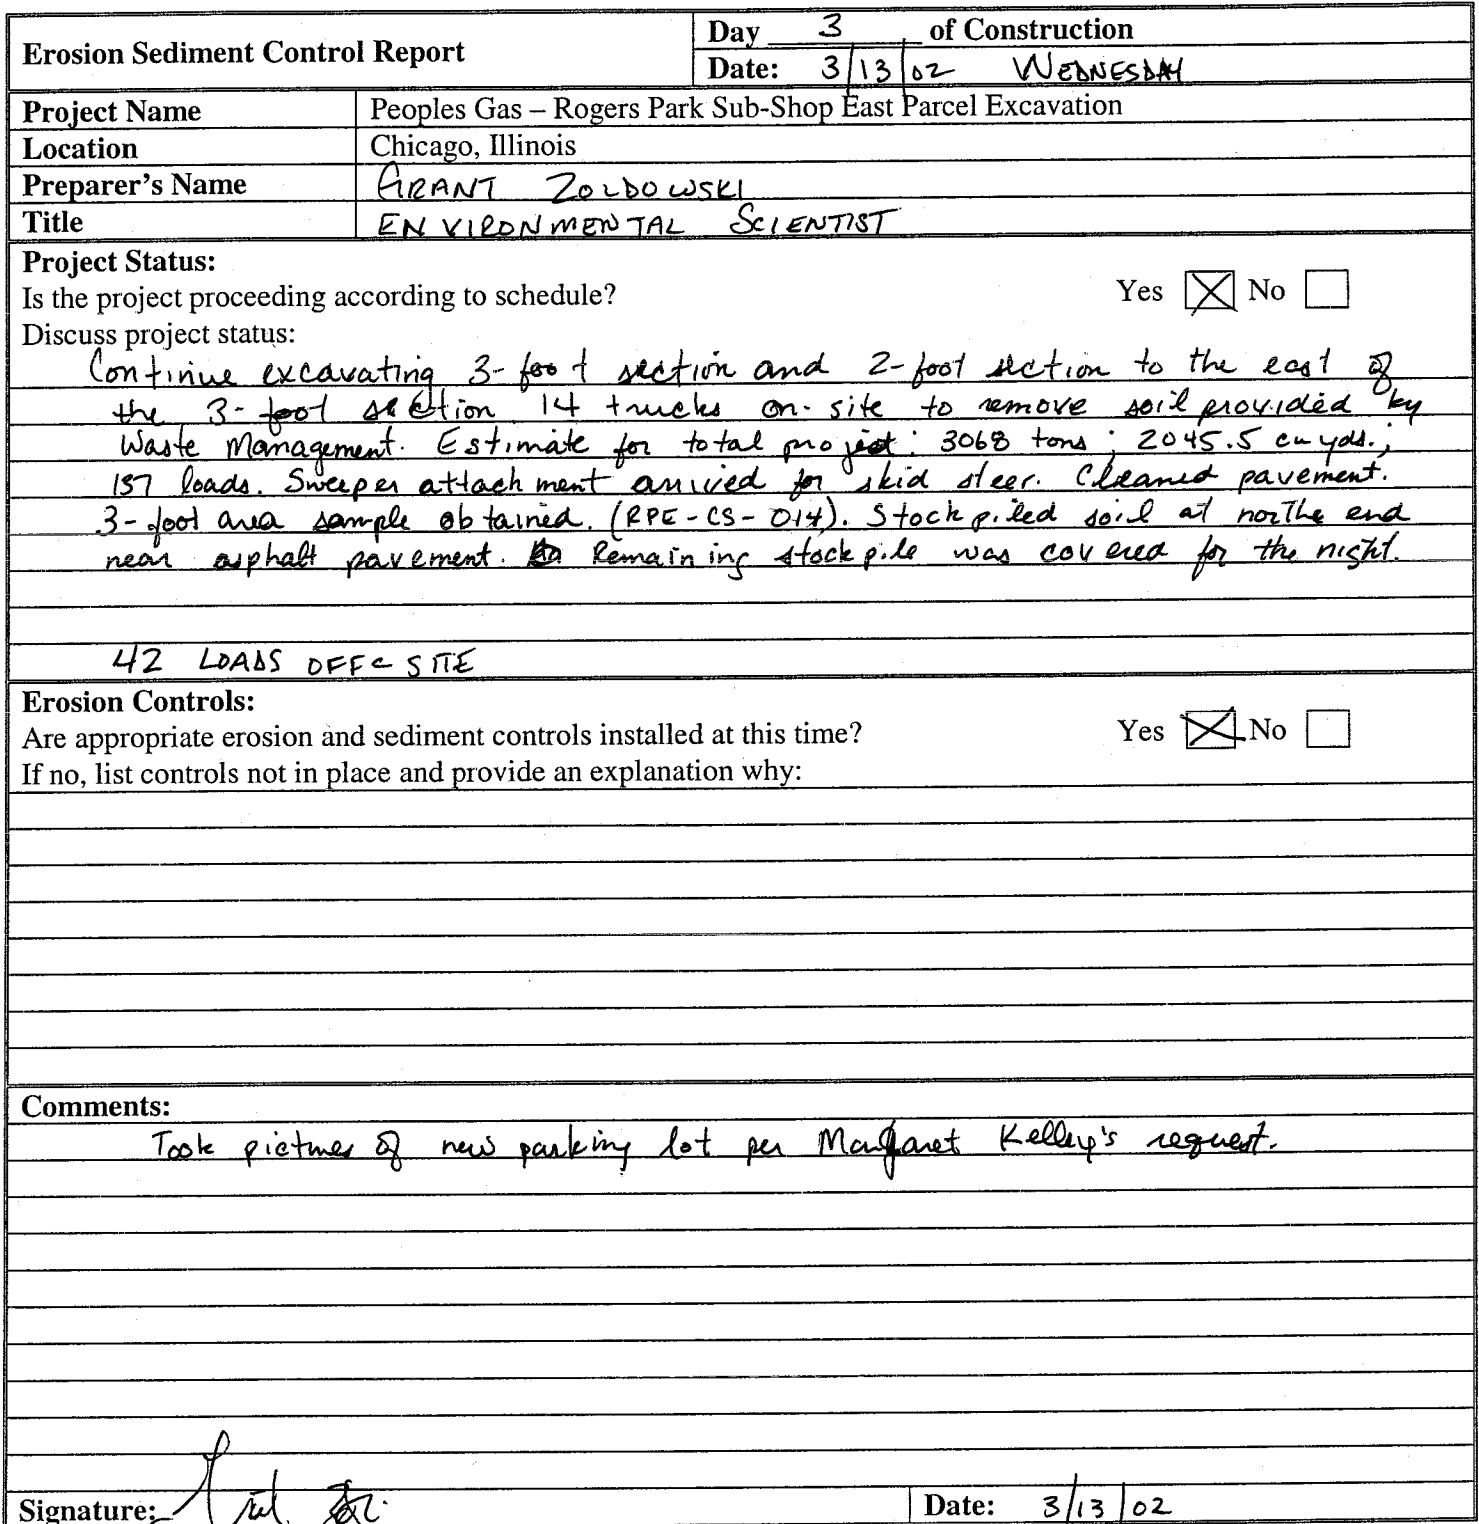 Erosion Sediment Control Report
Day 3 of Construction
Date: 3/13/02 WEDNESDAY
Project Name Peoples Gas – Rogers Park Sub-Shop East Parcel Excavation
Location Chicago, Illinois
Preparer's Name GRANT ZOLDOWSKI
Title ENVIRONMENTAL SCIENTIST
Project Status:
Is the project proceeding according to schedule? Yes No
Discuss project status:
Continue excavating 3-foot section and 2-foot section to the east of
the 3-foot section 14 trucks on-site to remove soil provided by
Waste Management. Estimate for total project: 3068 tons; 2045.5 cu yds.;
157 loads. Sweeper attachment arrived for skid steer. Cleaned pavement.
3-foot area sample obtained. (RPE-CS-014). Stockpiled soil at northe end
near asphalt pavement. Remaining stockpile was covered for the night.
42 LOADS OFF SITE
Erosion Controls:
Are appropriate erosion and sediment controls installed at this time? Yes No
If no, list controls not in place and provide an explanation why:
Comments:
Took pictures of new parking lot per Margaret Kelley's request.
Signature:
Date: 3/13/02